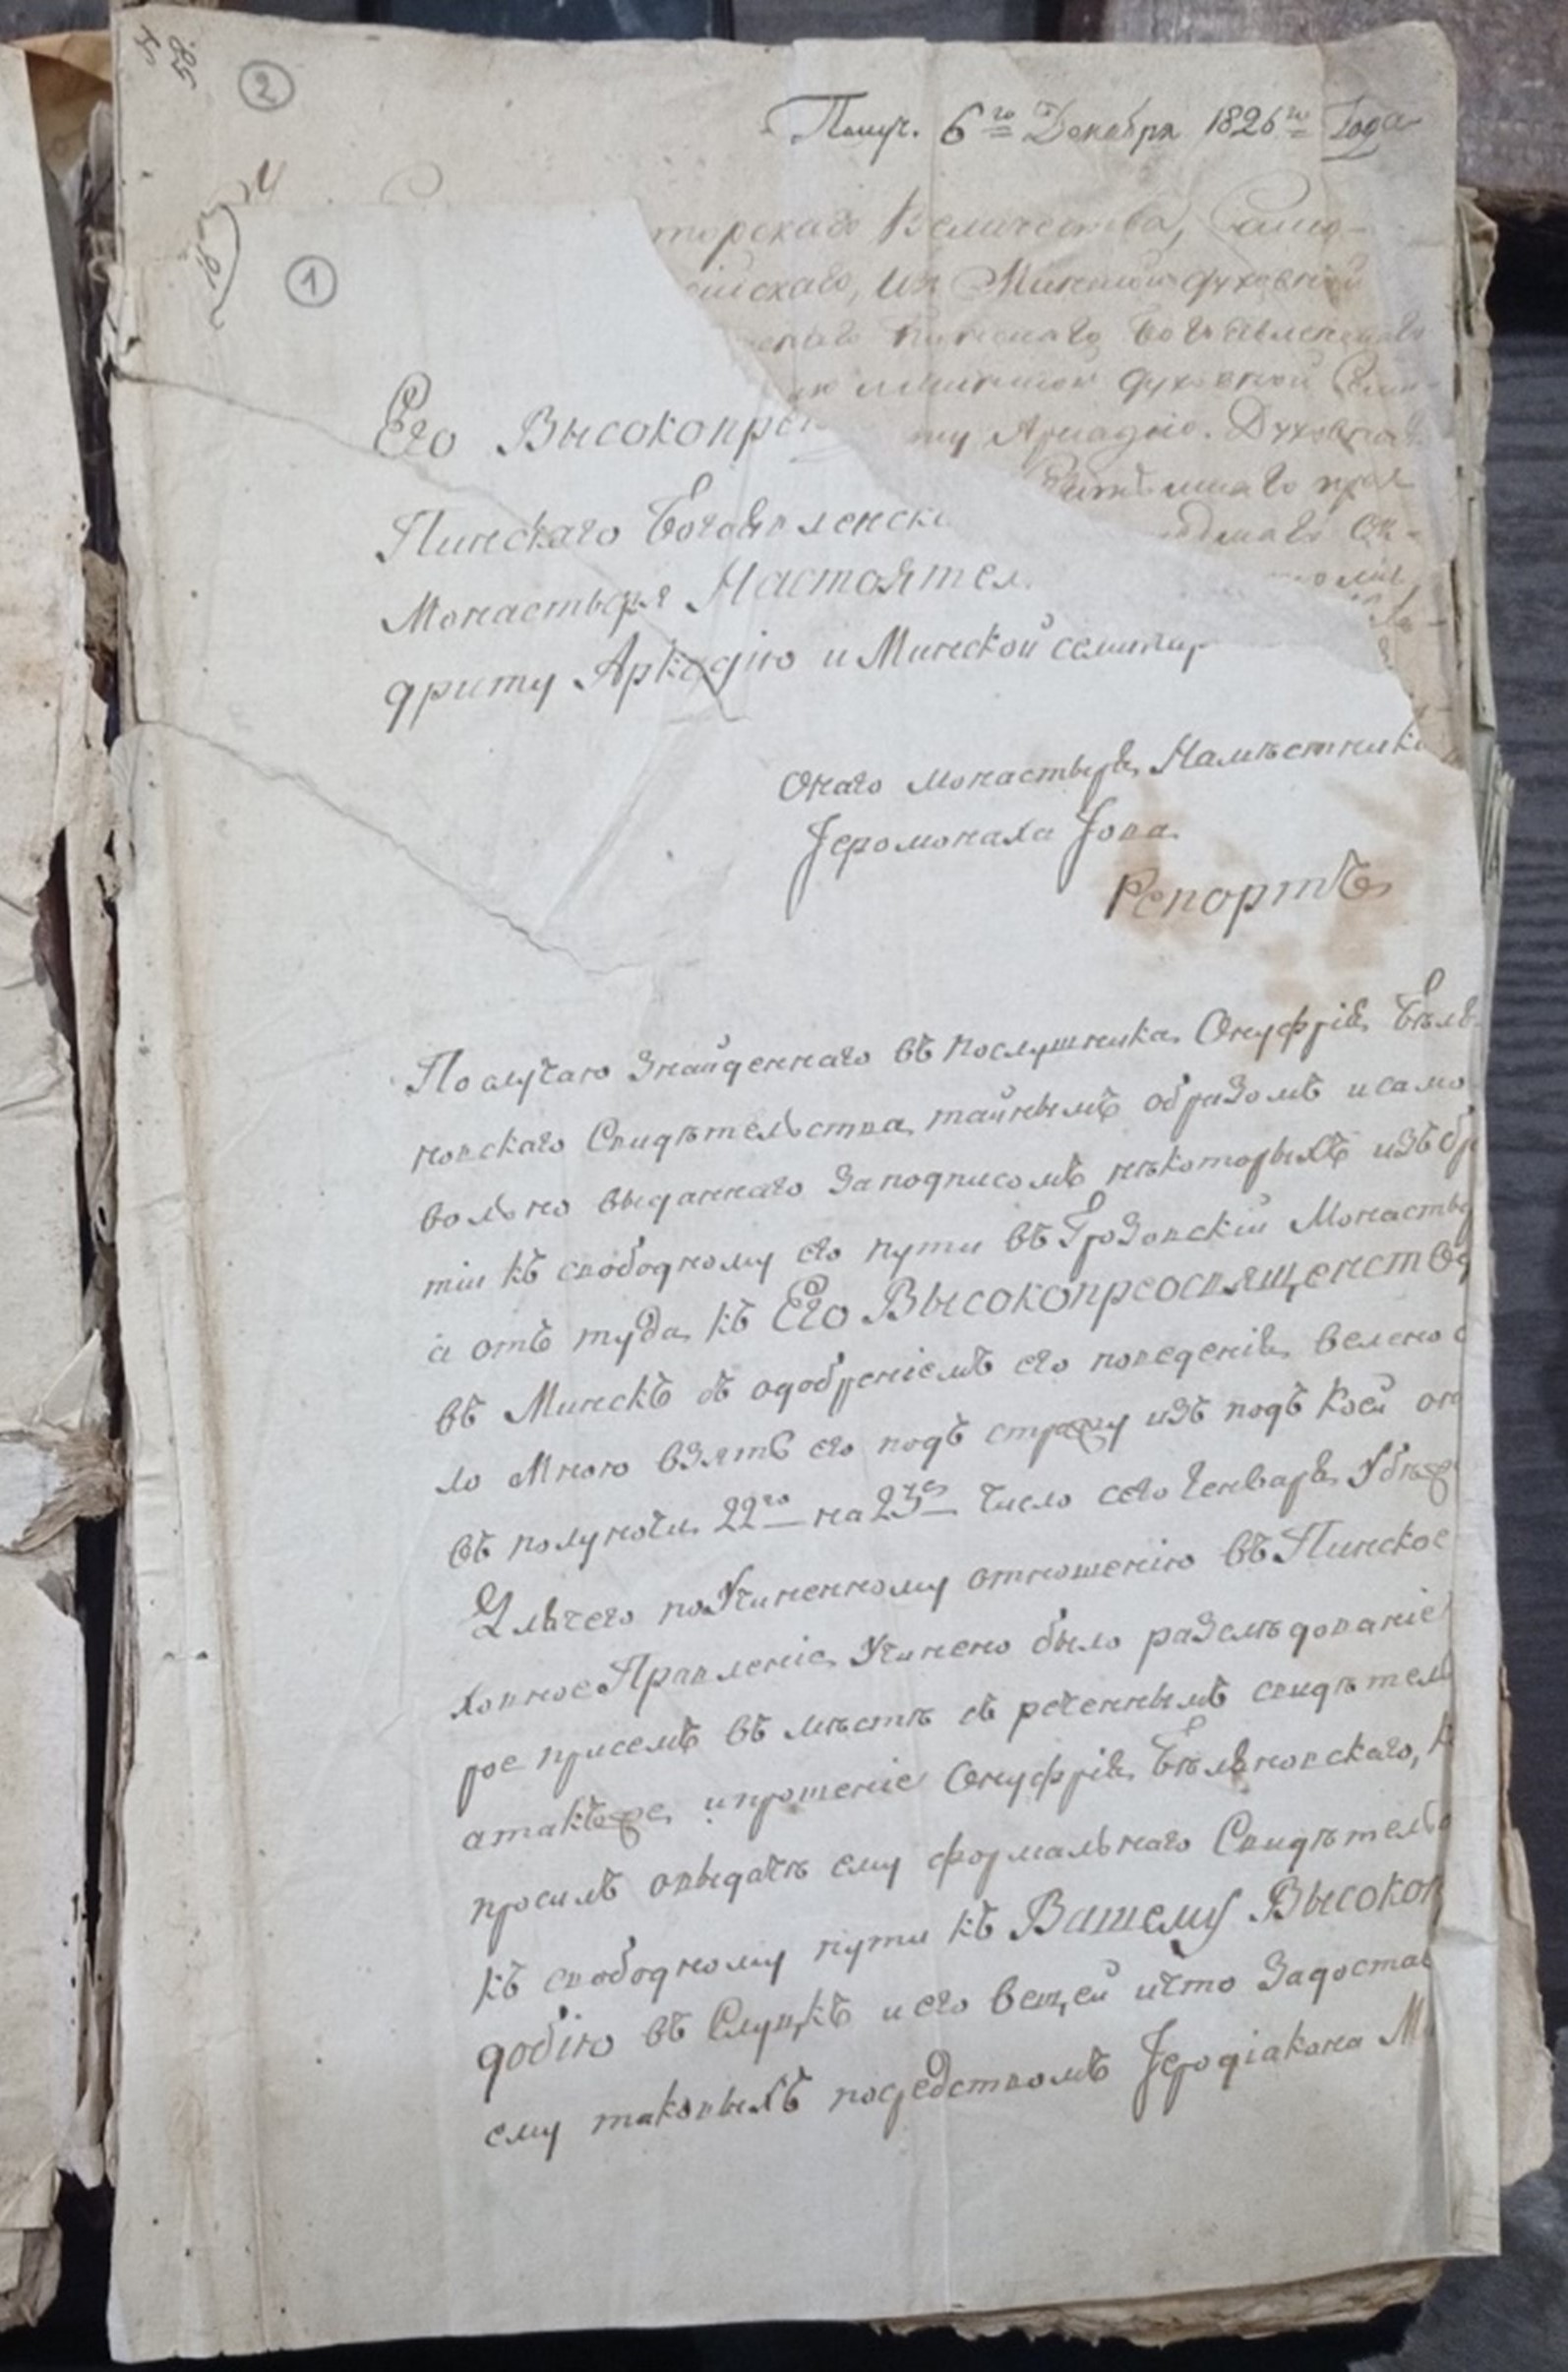 Н 58.
2
Получ. 6го Декабря 1826го Года
торскаго Величества, Само-
сійскаго, изъ Минской духовной
Пинскаго Богоявленскаго
минской духовной Семи-
ту Аркадію. Духовная
1
Его Высокопре
Пинскаго Богоявленска
Монастыря Настоятел
дриту Аркадію и Минской семинар
Онаго монастыря Намѣстника
Іеромонаха Іова
Репортъ
По случаю знайденнаго въ послушника Онуфрія Бѣля
новскаго Свидѣтельства тайнымъ образомъ и само
вольно выданнаго заподписомъ нѣкоторыхъ изъ бра
тіи къ свободному его пути въ Грозовскій Монасты
а отъ туда къ Его Высокопреосвященству
въ Минскъ съ одобреніемъ его поведенія велено б
ло мною взять его подъ стражу изъ подъ коей он
въ полуночи 22го на 23е число сего Генваря убѣж
Для чего по учиненному отношенію въ Пинское
ховное Правленіе учинено было разслѣдованіе
рое присемъ въ мѣстѣ съ реченнымъ свидѣтель
а такъже и прошеніе Онуфрія Бѣляновскаго, к
просилъ овыдачѣ ему формальнаго Свидѣтельс
къ свободному пути къ Вашему Высокоп
добію въ Слуцкъ и его вещей и что задостав
ему таковыхъ посредствомъ Іеродіакона М